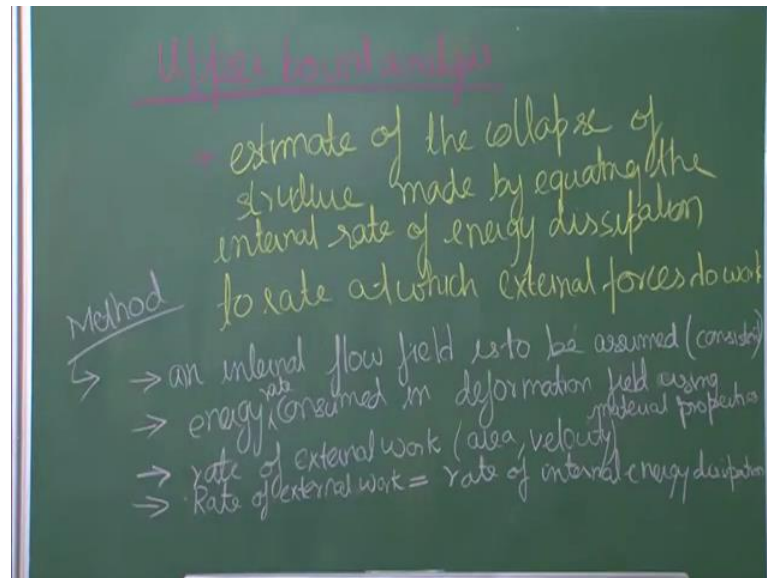 Upper bound analysis
estimate of the collapse of
structure made by equating the
internal rate of energy dissipation
to rate at which external forces do work
Method
→ an internal flow field is to be assumed (consistent)
→ energy rate consumed in deformation field using
material properties
→ rate of external work (area, velocity)
→ Rate of external work = rate of internal energy dissipation